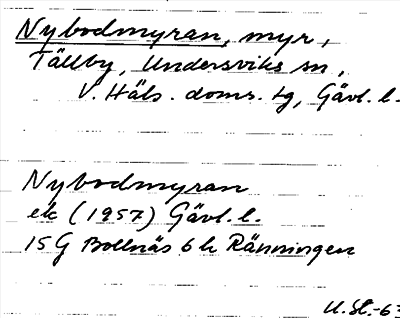 Nybodmyran, myr,
Tällby, Undersviks sn,
V. Häls. doms. tg, Gävl. l.
Nybodmyran
ek (1957) Gävl. l.
15 G Bollnäs 6 h Ränningen
U. St.-63